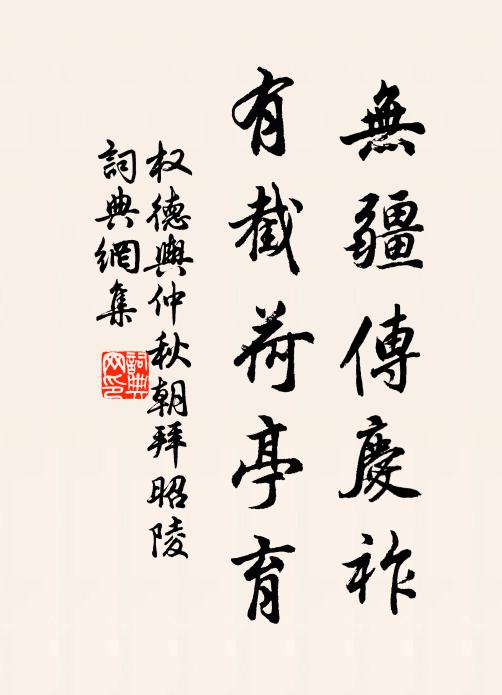 無疆傳慶祚
有截荷亭育
权德輿仲秋朝拜昭陵
詞典網集
詞典網印